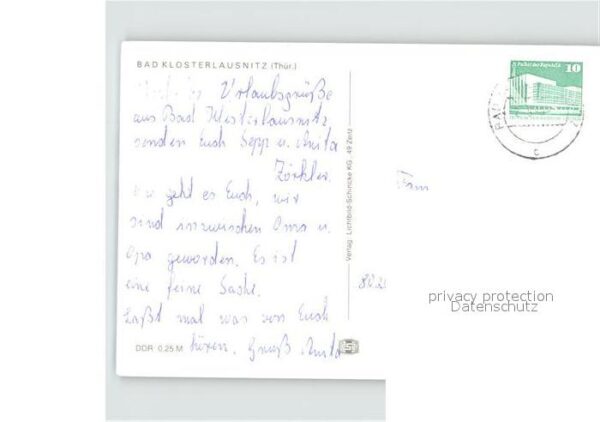 BAD KLOSTERLAUSNITZ (Thür.)
Urlaubsgrüße
aus Bad Klosterlausnitz
senden Euch Sepp u. Anita
Wie geht es Euch, wir
sind inzwischen Oma u.
Opa geworden. Es ist
eine feine Sache.
Laßt mal was von Euch
hören. Gruß Anita
DDR 0,25 M
Verlag: Lichtbild-Schincke KG, 49 Zeitz
10
Palast der Republik
C
Fam
privacy protection
Datenschutz